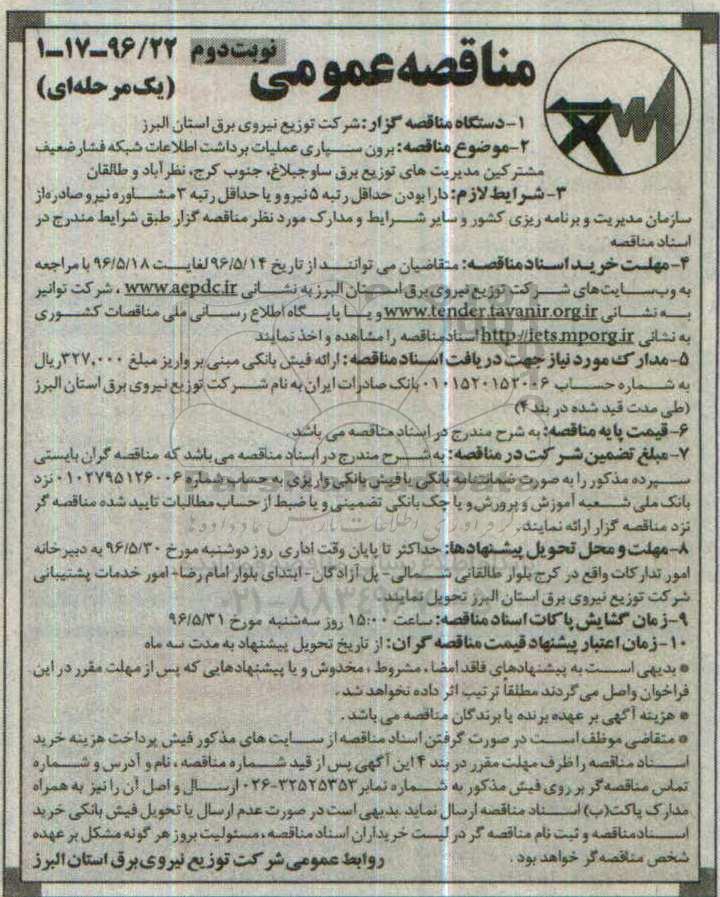 مناقصه عمومی
نوبت دوم
۱-۱۷-۹۶/۲۲
(یک مرحله‌ای)
۱-دستگاه مناقصه گزار: شرکت توزیع نیروی برق استان البرز
۲-موضوع مناقصه: برون سپاری عملیات برداشت اطلاعات شبکه فشار ضعیف
مشترکین مدیریت های توزیع برق ساوجبلاغ، جنوب کرج، نظرآباد و طالقان
۳-شرایط لازم: دارا بودن حداقل رتبه ۵ نیرو و یا حداقل رتبه ۳ مشاوره نیرو صادره از
سازمان مدیریت و برنامه ریزی کشور و سایر شرایط و مدارک مورد نظر مناقصه گزار طبق شرایط مندرج در
اسناد مناقصه
۴-مهلت خرید اسناد مناقصه: متقاضیان می توانند از تاریخ ۹۶/۵/۱۴ لغایت ۹۶/۵/۱۸ با مراجعه
به وب سایت های شرکت توزیع نیروی برق استان البرز به نشانی www.aepdc.ir ، شرکت توانیر
به نشانی www.tender.tavanir.org.ir و یا پایگاه اطلاع رسانی ملی مناقصات کشوری
به نشانی http://iets.mporg.ir اسناد مناقصه را مشاهده و اخذ نمایند
۵-مدارک مورد نیاز جهت دریافت اسناد مناقصه: ارائه فیش بانکی مبنی بر واریز مبلغ ۳۲۷,۰۰۰ ریال
به شماره حساب ۰۱۰۱۵۲۰۱۵۲۰۰۶ بانک صادرات ایران به نام شرکت توزیع نیروی برق استان البرز
(طی مدت قید شده در بند ۴)
۶-قیمت پایه مناقصه: به شرح مندرج در اسناد مناقصه می باشد.
۷-مبلغ تضمین شرکت در مناقصه: به شرح مندرج در اسناد مناقصه می باشد که مناقصه گران بایستی
سپرده مذکور را به صورت ضمانتنامه بانکی یا فیش بانکی واریزی به حساب شماره ۰۱۰۲۷۹۵۱۲۶۰۰۶ نزد
بانک ملی شعبه آموزش و پرورش و یا چک بانکی تضمینی و یا ضبط از حساب مطالبات تایید شده مناقصه گر
نزد مناقصه گزار ارائه نمایند.
۸-مهلت و محل تحویل پیشنهادها: حداکثر تا پایان وقت اداری روز دوشنبه مورخ ۹۶/۵/۳۰ به دبیرخانه
امور تدارکات واقع در کرج بلوار طالقانی شمالی- پل آزادگان- ابتدای بلوار امام رضا- امور خدمات پشتیبانی
شرکت توزیع نیروی برق استان البرز تحویل نمایند
۹-زمان گشایش پاکات اسناد مناقصه: ساعت ۱۵:۰۰ روز سه شنبه مورخ ۹۶/۵/۳۱
۱۰-زمان اعتبار پیشنهاد قیمت مناقصه گران: از تاریخ تحویل پیشنهاد به مدت سه ماه
* بدیهی است به پیشنهادهای فاقد امضا، مشروط، مخدوش و یا پیشنهادهایی که پس از مهلت مقرر در این
فراخوان واصل می گردند مطلقاً ترتیب اثر داده نخواهد شد.
* هزینه آگهی بر عهده برنده یا برندگان مناقصه می باشد.
* متقاضی موظف است در صورت گرفتن اسناد مناقصه از سایت های مذکور فیش پرداخت هزینه خرید
اسناد مناقصه را ظرف مهلت مقرر در بند ۴ این آگهی پس از قید شماره مناقصه، نام و آدرس و شماره
تماس مناقصه گر بر روی فیش مذکور به شماره نمابر ۳۲۵۲۵۳۵۳-۰۲۶ ارسال و اصل آن را نیز به همراه
مدارک پاکت(ب) اسناد مناقصه ارسال نماید. بدیهی است در صورت عدم ارسال یا تحویل فیش بانکی خرید
اسناد مناقصه و ثبت نام مناقصه گر در لیست خریداران اسناد مناقصه، مسئولیت بروز هر گونه مشکل بر عهده
شخص مناقصه گر خواهد بود.
روابط عمومی شرکت توزیع نیروی برق استان البرز